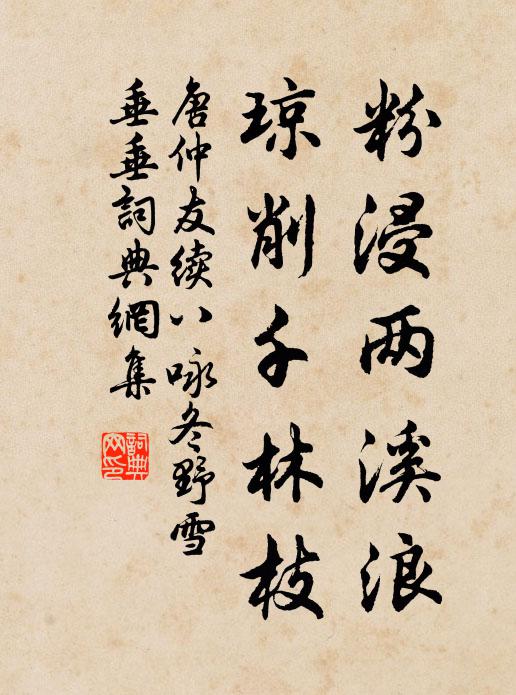 粉浸两溪浪
琼削千林枝
唐仲友续八咏冬野雪
垂垂詞典網集
詞典
网印